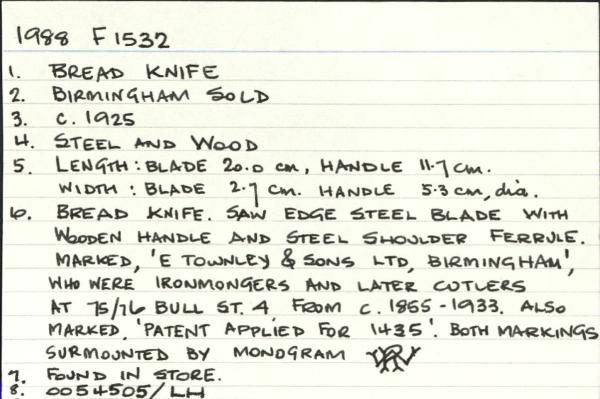 1988 F1532
1. BREAD KNIFE
2. BIRMINGHAM SOLD
3. C. 1925
4. STEEL AND WOOD
5. LENGTH: BLADE 20.0 cm, HANDLE 11.7 cm.
WIDTH: BLADE 2.7 cm. HANDLE 5.3 cm, dia.
6. BREAD KNIFE. SAW EDGE STEEL BLADE WITH
WOODEN HANDLE AND STEEL SHOULDER FERRULE.
MARKED, 'E TOWNLEY & SONS LTD, BIRMINGHAM',
WHO WERE IRONMONGERS AND LATER CUTLERS
AT 75/76 BULL ST. 4, FROM C. 1855-1933. ALSO
MARKED, 'PATENT APPLIED FOR 1435'. BOTH MARKINGS
SURMOUNTED BY MONOGRAM
7. FOUND IN STORE.
8. 0054505/LH